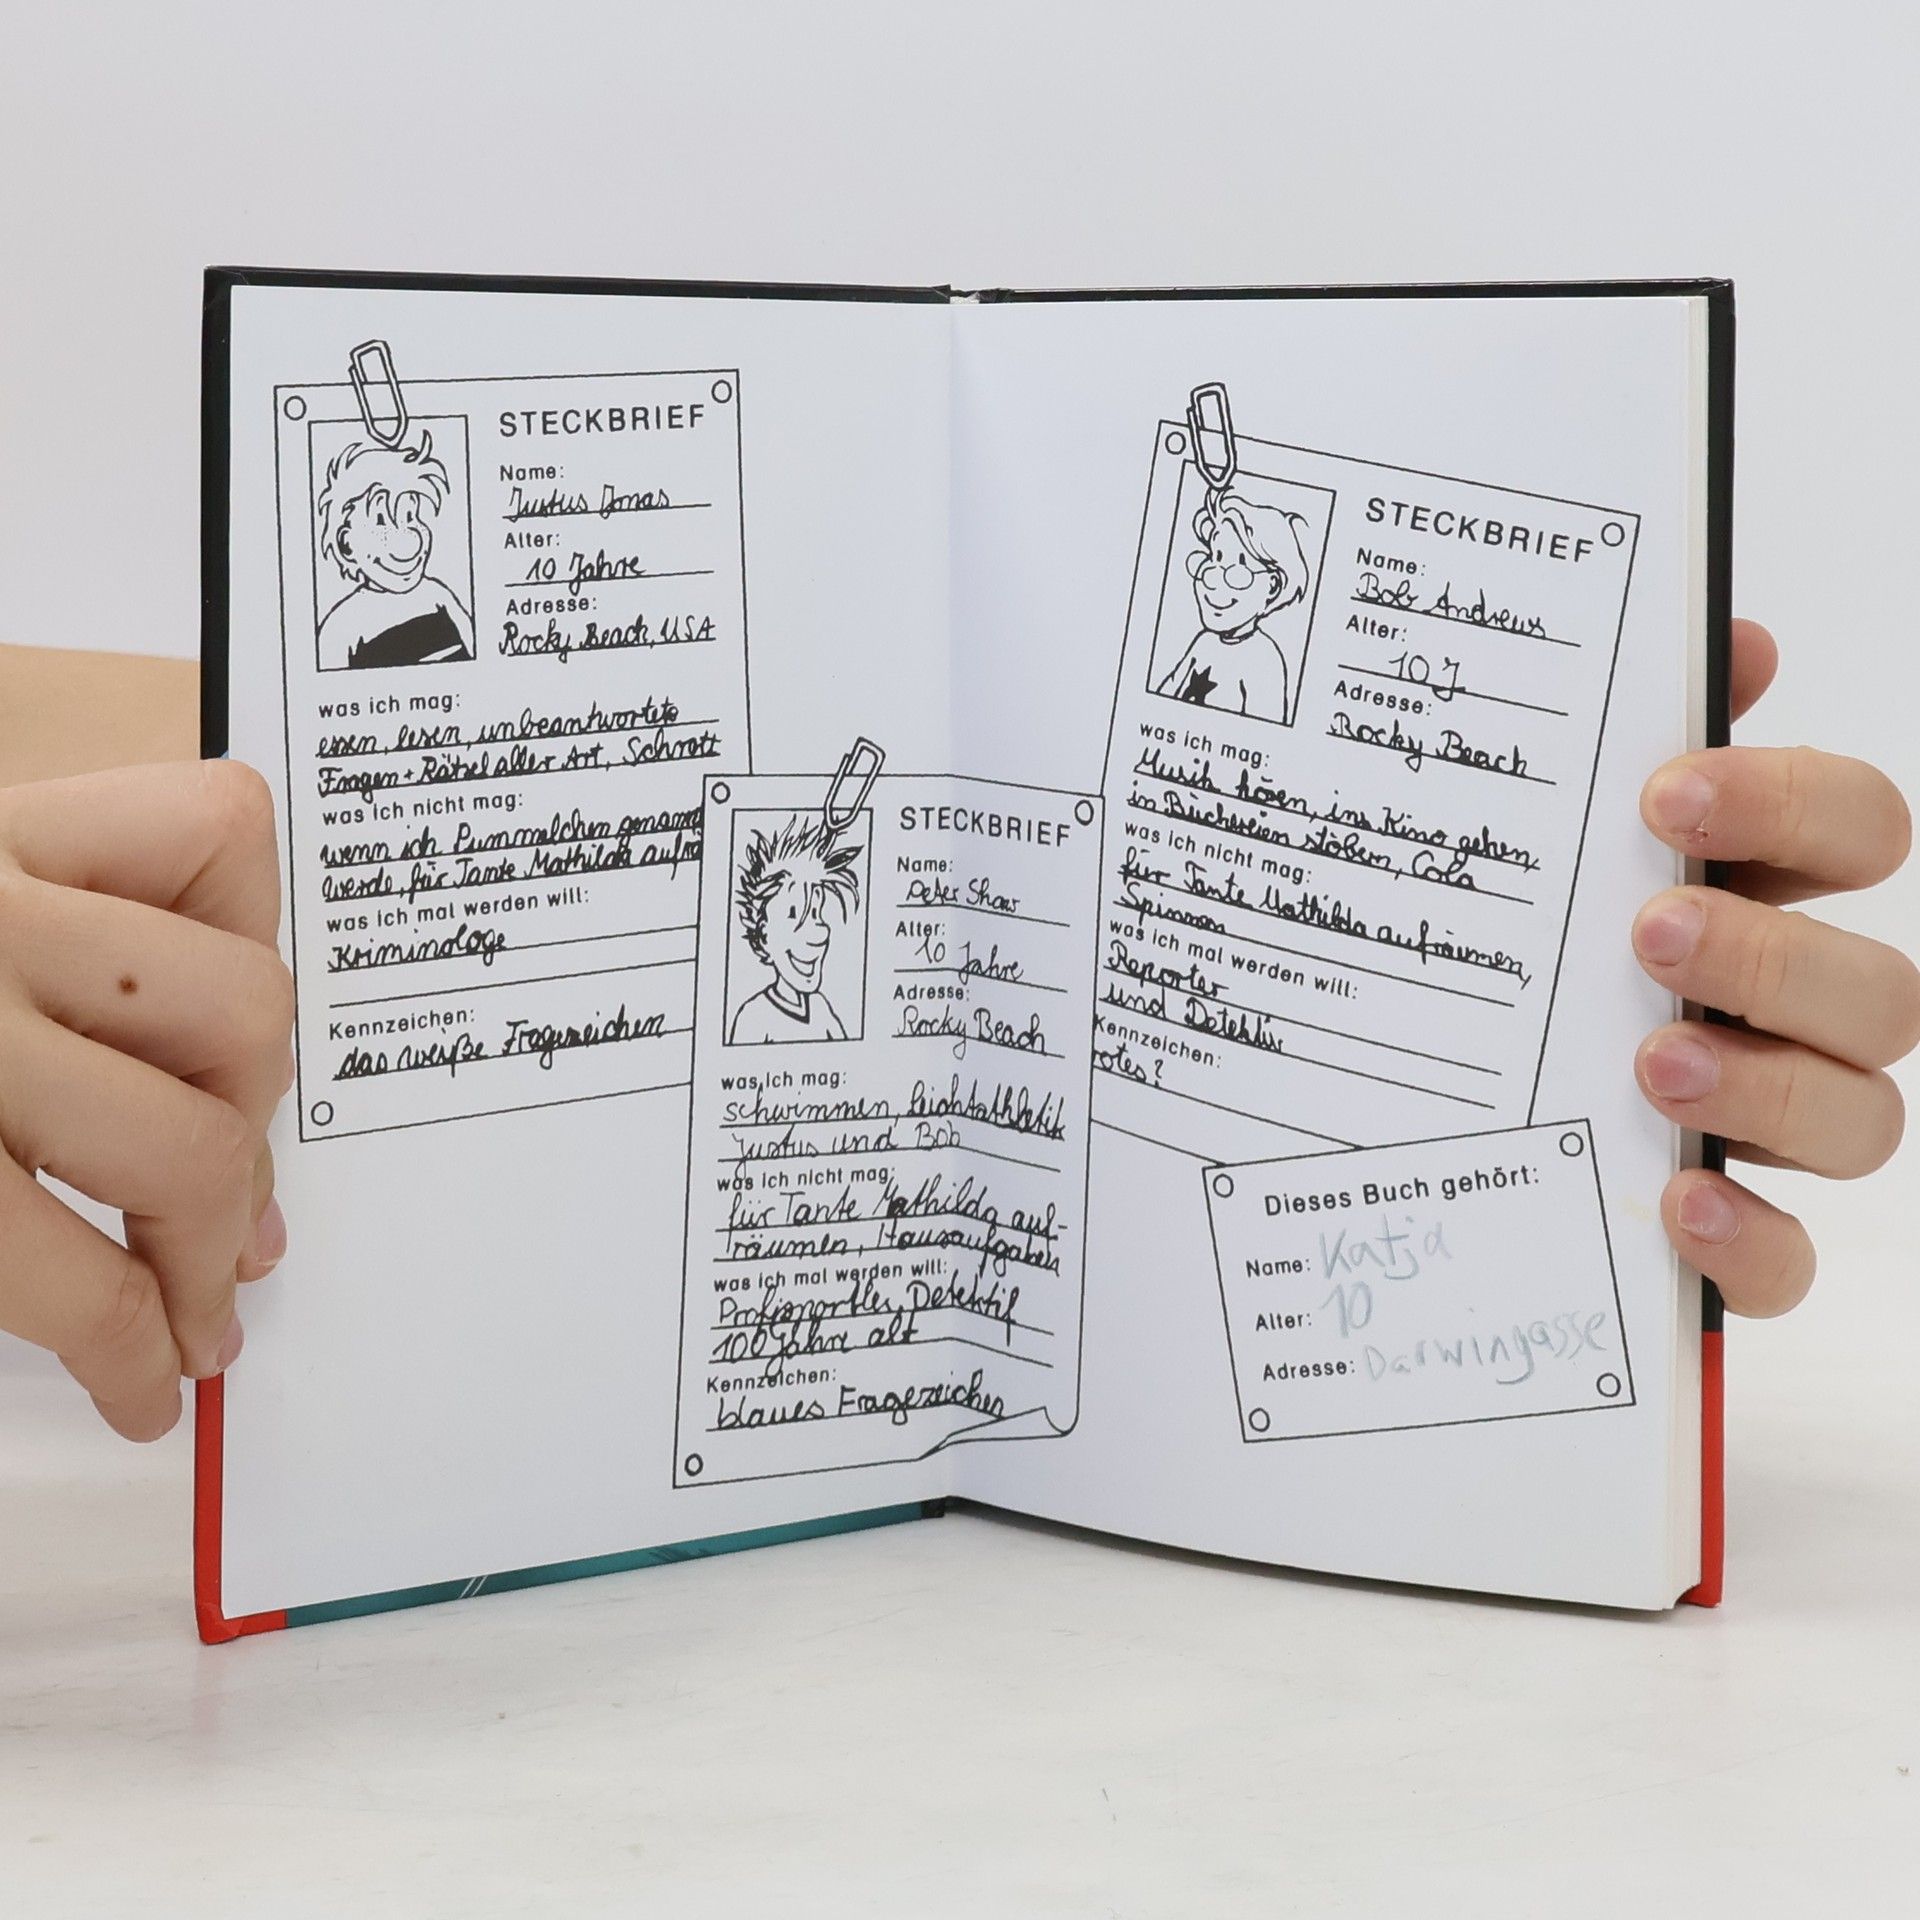 STECKBRIEF
Name:
Justus Jonas
Alter:
10 Jahre
Adresse:
Rocky Beach, USA
was ich mag:
essen, lesen, unbeantwortete
Fragen + Rätsel aller Art, Schrott
was ich nicht mag:
wenn ich Pummelchen genannt
werde, für Tante Mathilda aufrä
was ich mal werden will:
Kriminologe
Kennzeichen:
das weiße Fragezeichen
STECKBRIEF
Name:
Peter Shaw
Alter:
10 Jahre
Adresse:
Rocky Beach
was ich mag:
schwimmen, Leichtathletik
Justus und Bob
was ich nicht mag:
für Tante Mathilda auf-
räumen, Hausaufgaben
was ich mal werden will:
Profisportler, Detektif
100 Jahre alt
Kennzeichen:
blaues Fragezeichen
STECKBRIEF
Name:
Bob Andrews
Alter:
10 J
Adresse:
Rocky Beach
was ich mag:
Musik hören, ins Kino gehen,
in Büchereien stöbern, Cola
was ich nicht mag:
für Tante Mathilda aufräumen,
Spinnen
was ich mal werden will:
Reporter
und Detektiv
Kennzeichen:
rotes ?
Dieses Buch gehört:
Name: Katja
Alter: 10
Adresse: Darwingasse